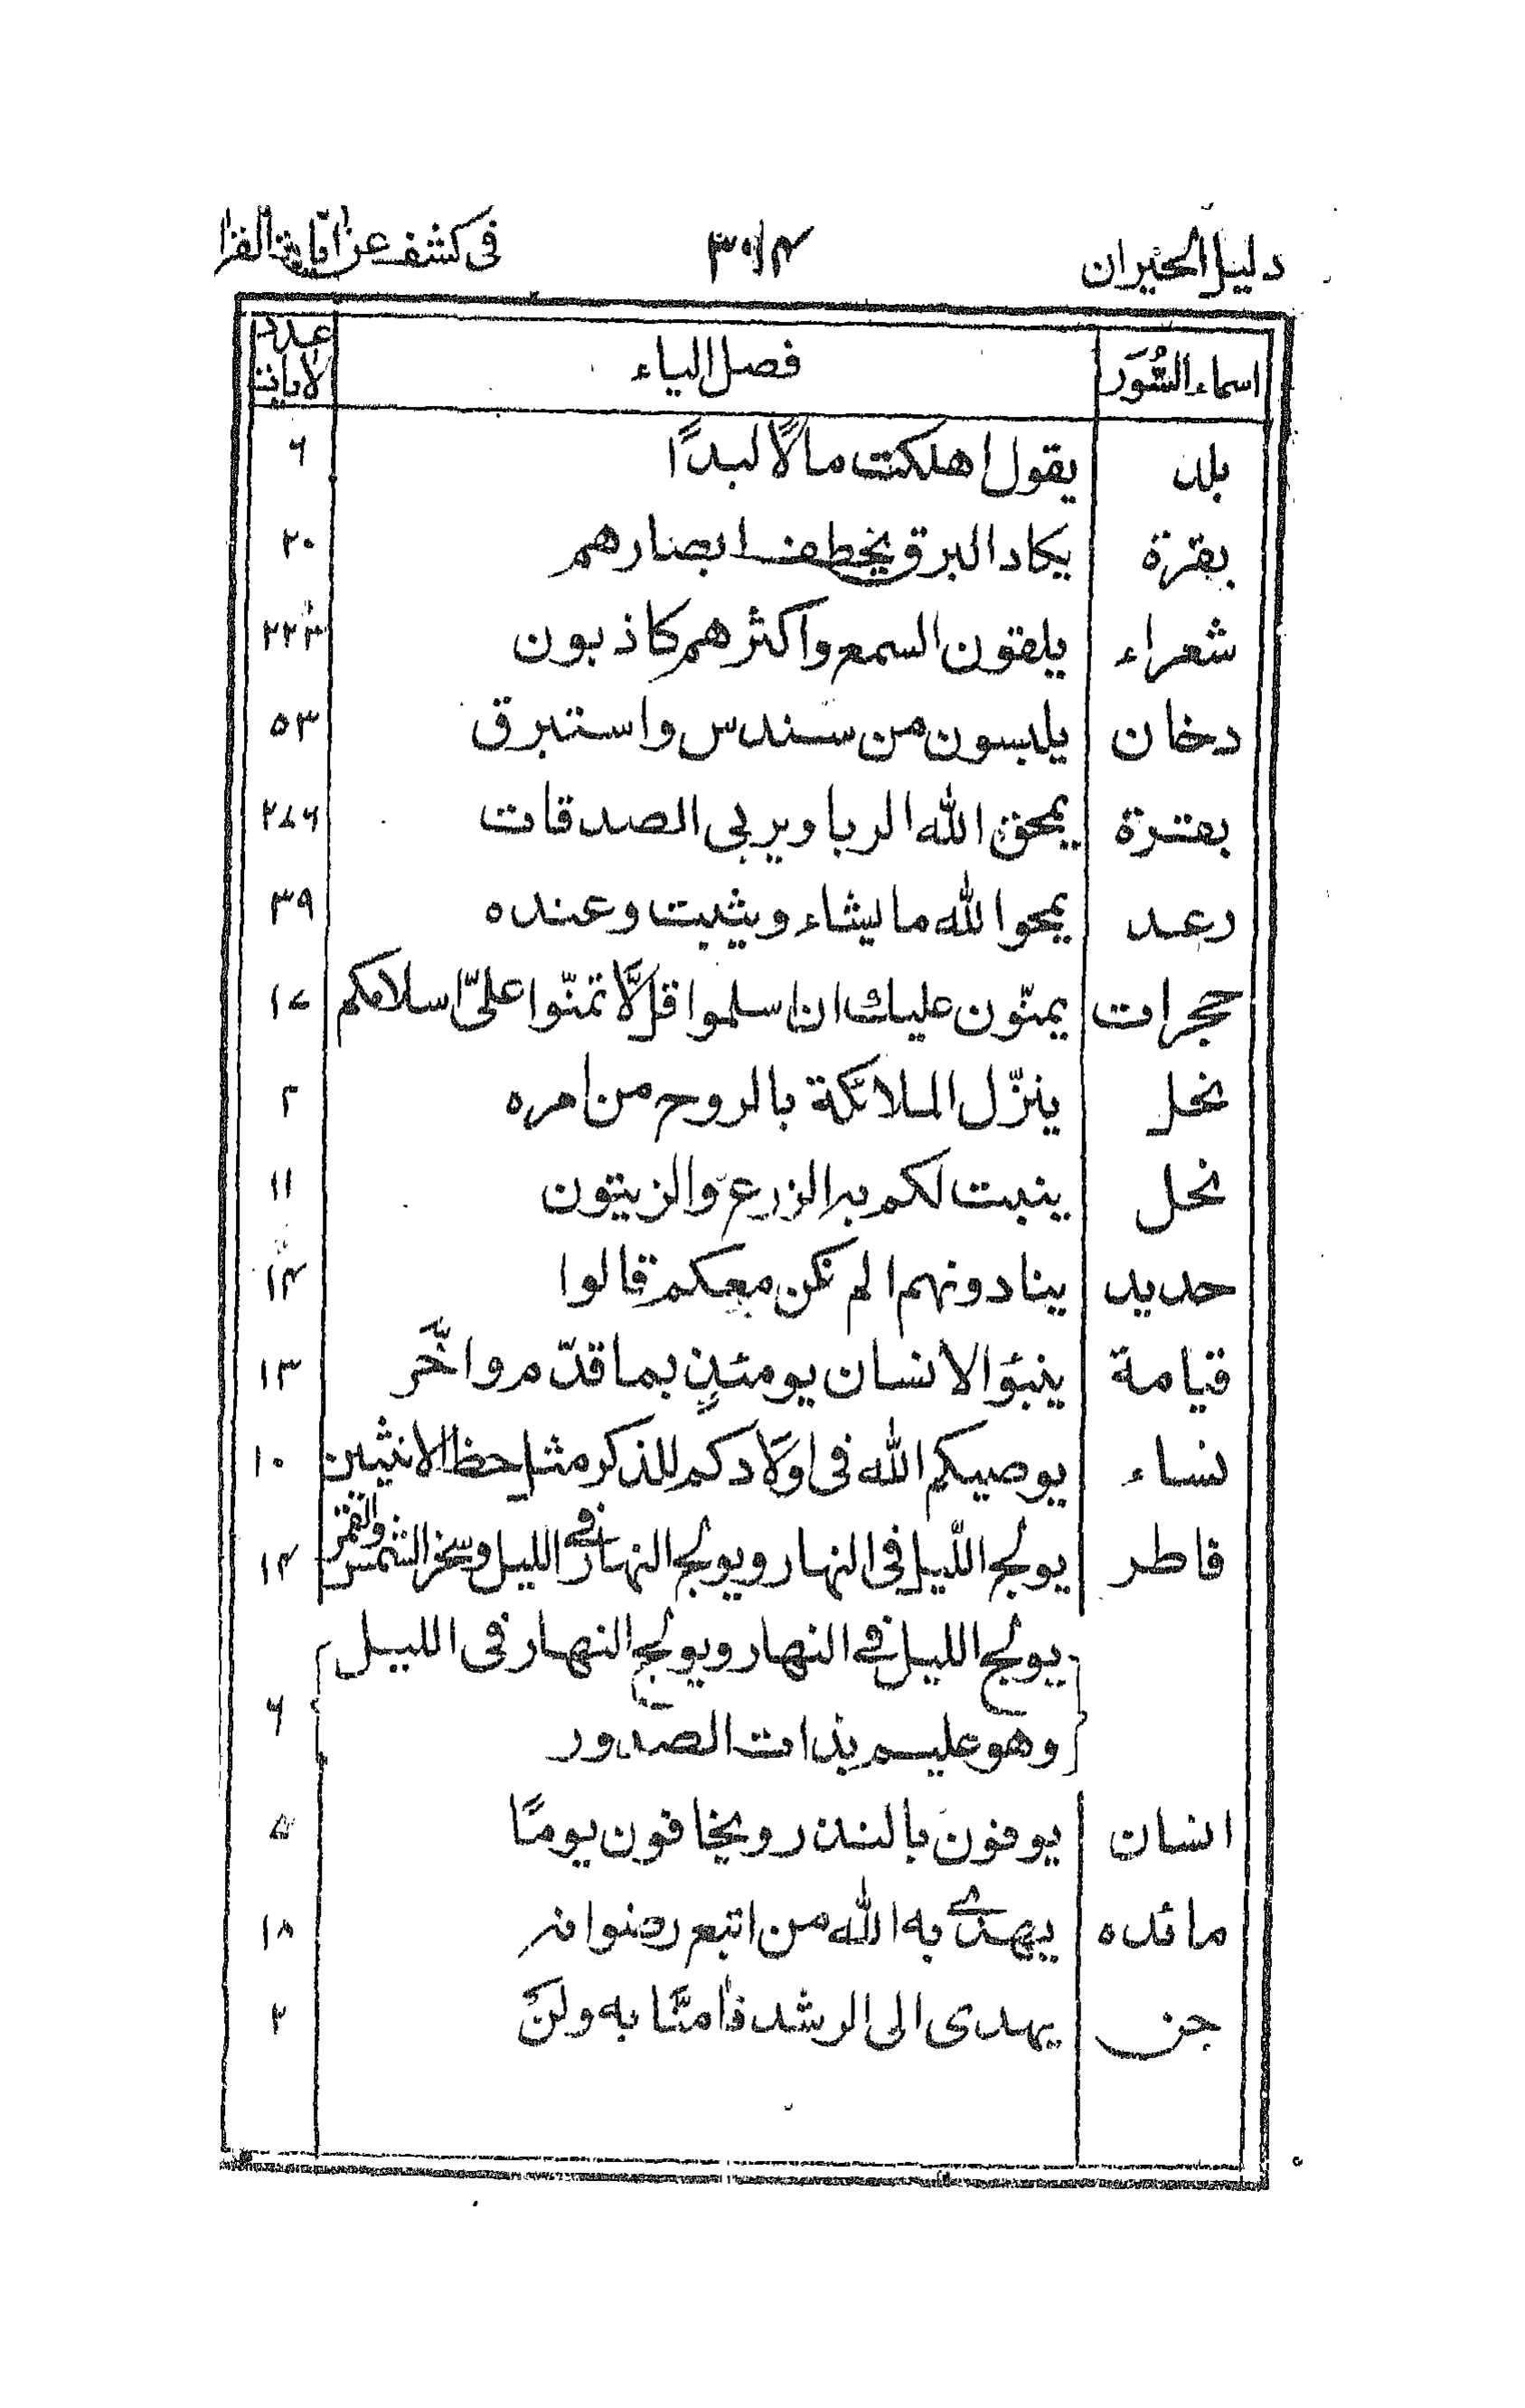 دليل الحيران ٣٠٤ فى كشف عن ايات القران
اسماء السُّوَر فصل الياء عدد الايات
بلد يقول اهلكت مالًا لبدًا ٦
بقرة يكاد البرق يخطف ابصارهم ٢٠
شعراء يلقون السمع واكثرهم كاذبون ٢٢٣
دخان يلبسون من سندس واستبرق ٥٣
بقرة يمحق الله الربا ويربى الصدقات ٢٧٦
رعد يمحوا الله ما يشاء ويثبت وعنده ٣٩
حجرات يمنّون عليك ان اسلموا قل لَّا تمنّوا علىّ اسلامكم ١٧
نحل ينزّل الملائكة بالروح من امره ٢
نحل ينبت لكم به الزرع والزيتون ١١
حديد ينادونهم الم نكن معكم قالوا ١٤
قيامة ينبؤ الانسان يومئذٍ بما قدّم واخَّر ١٣
نساء يوصيكم الله فى اولادكم للذكر مثل حظ الانثيين ١٠
فاطر يولج الليل فى النهار ويولج النهار فے الليل وسخر الشمس والقمر ١٤
يولج الليل فے النهار ويولج النهار فى الليل
وهو عليم بذات الصدور ٦
انسان يوفون بالنذر ويخافون يومًا ٧
مائده يهدے به الله من اتبع رضوانه ١٨
جن يهدى الى الرشد فامنَّا به ولن ٢